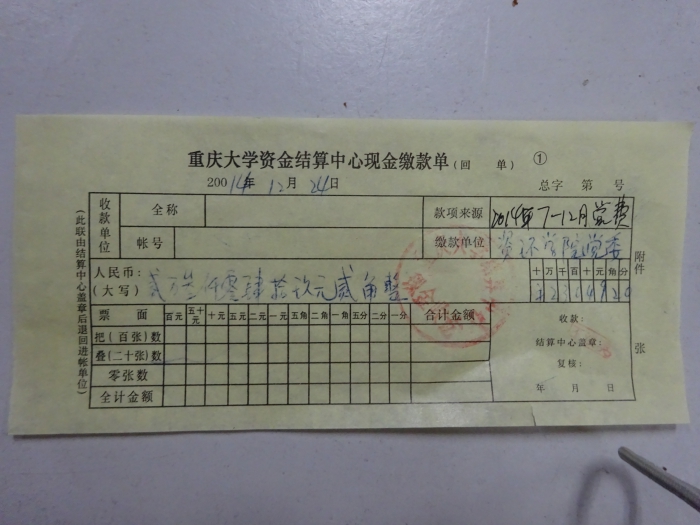 重庆大学资金结算中心现金缴款单(回 单) ①
20014年12月24日 总字 第 号
收款单位 全称 款项来源 2014年7-12月党费
帐号 缴款单位 资环学院党委
人民币:(大写) 贰万叁仟零肆拾玖元贰角整 十万千百十元角分 2304920
票面 百元 五十元 十元 五元 二元 一元 五角 二角 一角 五分 二分 一分 合计金额 收款:
把(百张)数 结算中心盖章:
叠(二十张)数 复核:
零张数 年 月 日
全计金额
(此联由结算中心盖章后退回进帐单位)
附件 张